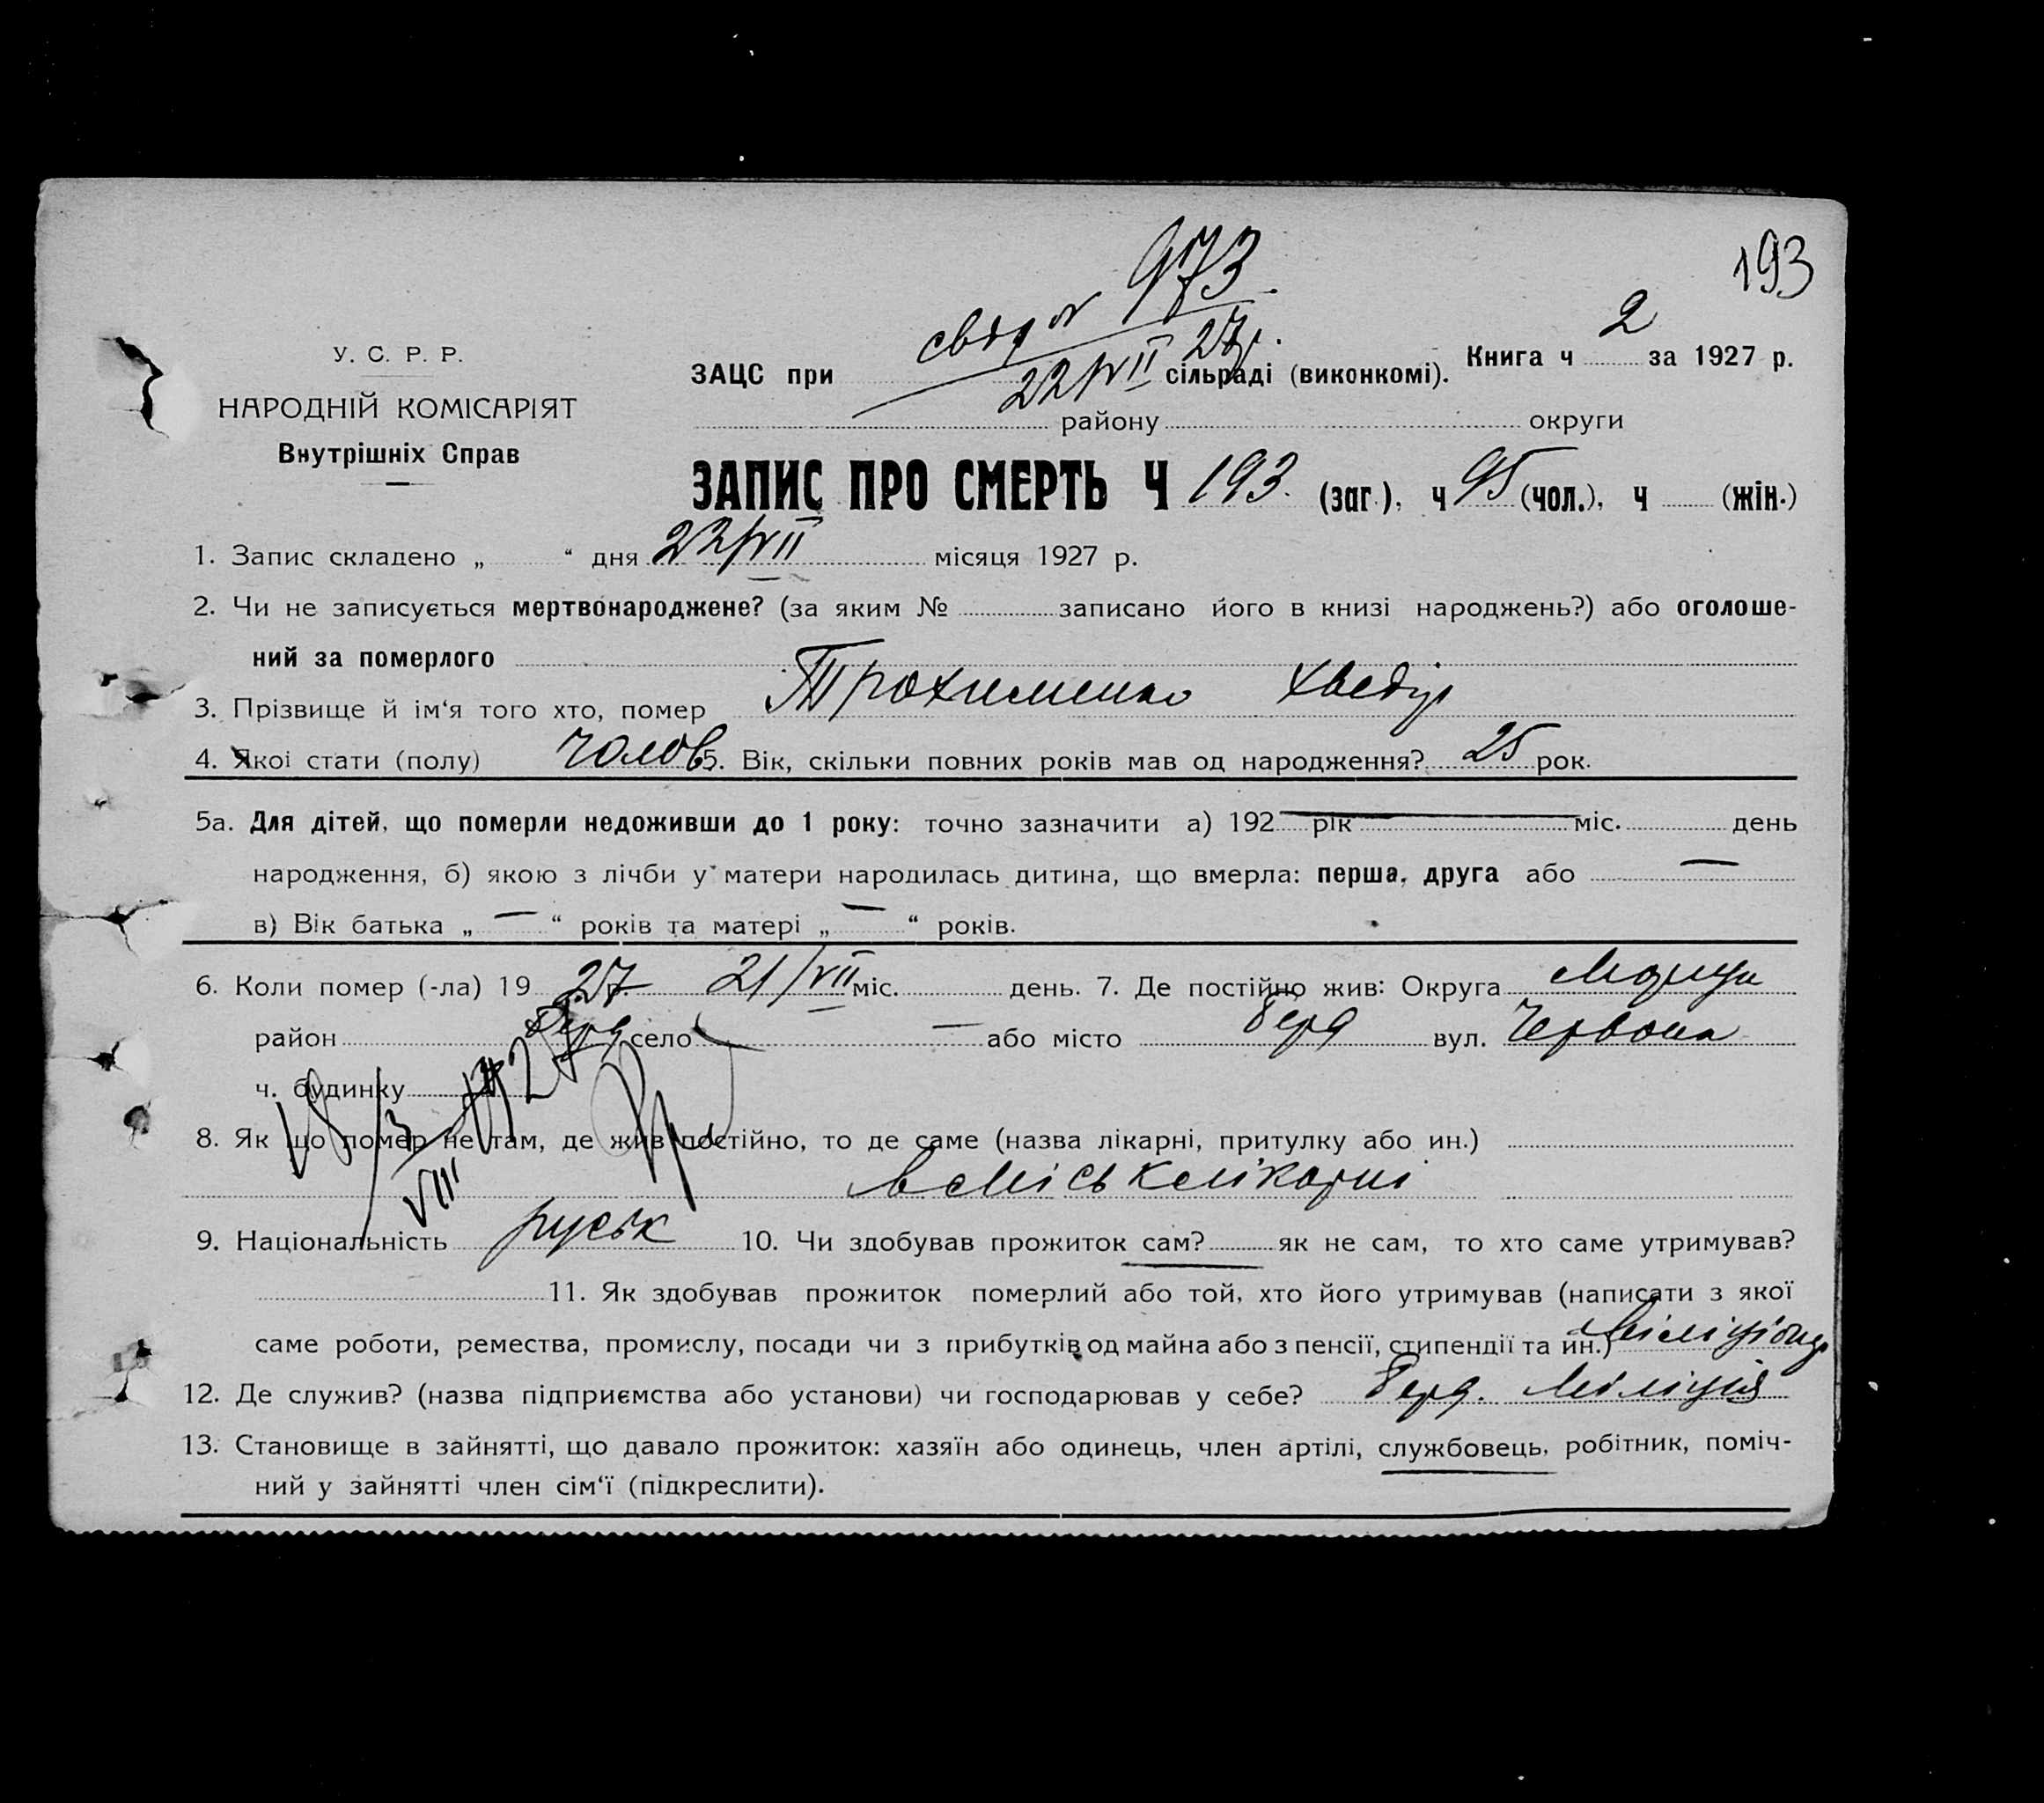 193
свід № 973
22/VII 27р.
У. С. Р. Р.
НАРОДНІЙ КОМІСАРІЯТ
Внутрішніх Справ
Книга ч 2 за 1927 р.
ЗАЦС при сільраді (виконкомі).
району округи
ЗАПИС ПРО СМЕРТЬ Ч 193. (заг.), ч 95 (чол.), ч (жін.)
1. Запис складено „ “ дня 22/VII місяця 1927 р.
2. Чи не записується мертвонароджене? (за яким № записано його в книзі народжень?) або оголоше-
ний за померлого
3. Прізвище й ім‘я того хто, помер Трохименко Хведір
4. Якої стати (полу) чолов. 5. Вік, скільки повних років мав од народження? 25 рок.
5а. Для дітей, що померли недоживши до 1 року: точно зазначити а) 192 рік — міс. день
народження, б) якою з лічби у матери народилась дитина, що вмерла: перша, друга або —
в) Вік батька „ — “ років та матері „ — “ років.
6. Коли помер (-ла) 19 27р. 21/VII міс. день. 7. Де постійно жив: Округа Маріуп
район Берд село — або місто Берд вул. Червона
ч. будинку
8. Як що помер не там, де жив постійно, то де саме (назва лікарні, притулку або ин.)
в міськлікарні
9. Національність руськ 10. Чи здобував прожиток сам? як не сам, то хто саме утримував?
11. Як здобував прожиток померлий або той, хто його утримував (написати з якої
саме роботи, ремества, промислу, посади чи з прибутків од майна або з пенсії, стипендії та ин.) міліціонер
12. Де служив? (назва підприємства або установи) чи господарював у себе? Берд. Міліція
13. Становище в зайнятті, що давало прожиток: хазяїн або одинець, член артілі, службовець, робітник, поміч-
ний у зайнятті член сім‘ї (підкреслити).